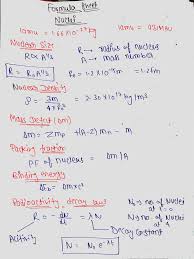 Formula sheet
Nuclei
1amu = 1.66×10⁻²⁷ kg 1amu = 931 MeV
Nuclear Size
R∝A^1/3 R → radius of nucleus
A → mass number
R = R₀A^1/3 R₀ = 1.2×10⁻¹⁵ m = 1.2 fm
Nuclear Density
ρ = 3m/4πR₀³ = 2.30×10¹⁷ kg/m³
Mass defect (Δm)
Δm = Zmp + (A-Z)mn - m
Packing fraction
PF of nucleus = Δm/A
Binding energy
ΔEb = Δmc²
Radioactivity decay law
R = -dN/dt = λN
N₀ → no of Nuclei at t=0
N → no of nuclei at t
Activity Decay Constant
N = N₀e^-λt